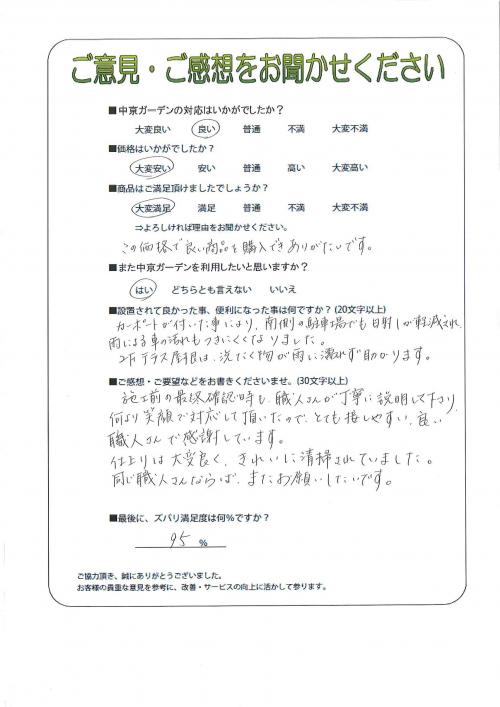 ご意見・ご感想をお聞かせください
■中京ガーデンの対応はいかがでしたか？
大変良い 良い 普通 不満 大変不満
■価格はいかがでしたか？
大変安い 安い 普通 高い 大変高い
■商品はご満足頂けましたでしょうか？
大変満足 満足 普通 不満 大変不満
⇒よろしければ理由をお聞かせください。
この価格で良い商品を購入できありがたいです。
■また中京ガーデンを利用したいと思いますか？
はい どちらとも言えない いいえ
■設置されて良かった事、便利になった事は何ですか？(20文字以上)
カーポートが付いた事により、南側の駐車場でも日射しが軽減され、
雨による車の汚れもつきにくくなりました。
2Fテラス屋根は、洗たく物が雨に濡れず助かります。
■ご感想・ご要望などをお書きくださいませ。(30文字以上)
施工前の最終確認時も、職人さんが丁寧に説明して下さり、
何より笑顔で対応して頂いたので、とても接しやすい、良い
職人さんで感謝しています。
仕上りは大変良く、きれいに清掃されていました。
同じ職人さんならば、またお願いしたいです。
■最後に、ズバリ満足度は何%ですか？
95 %
ご協力頂き、誠にありがとうございました。
お客様の貴重な意見を参考に、改善・サービスの向上に活かして参ります。